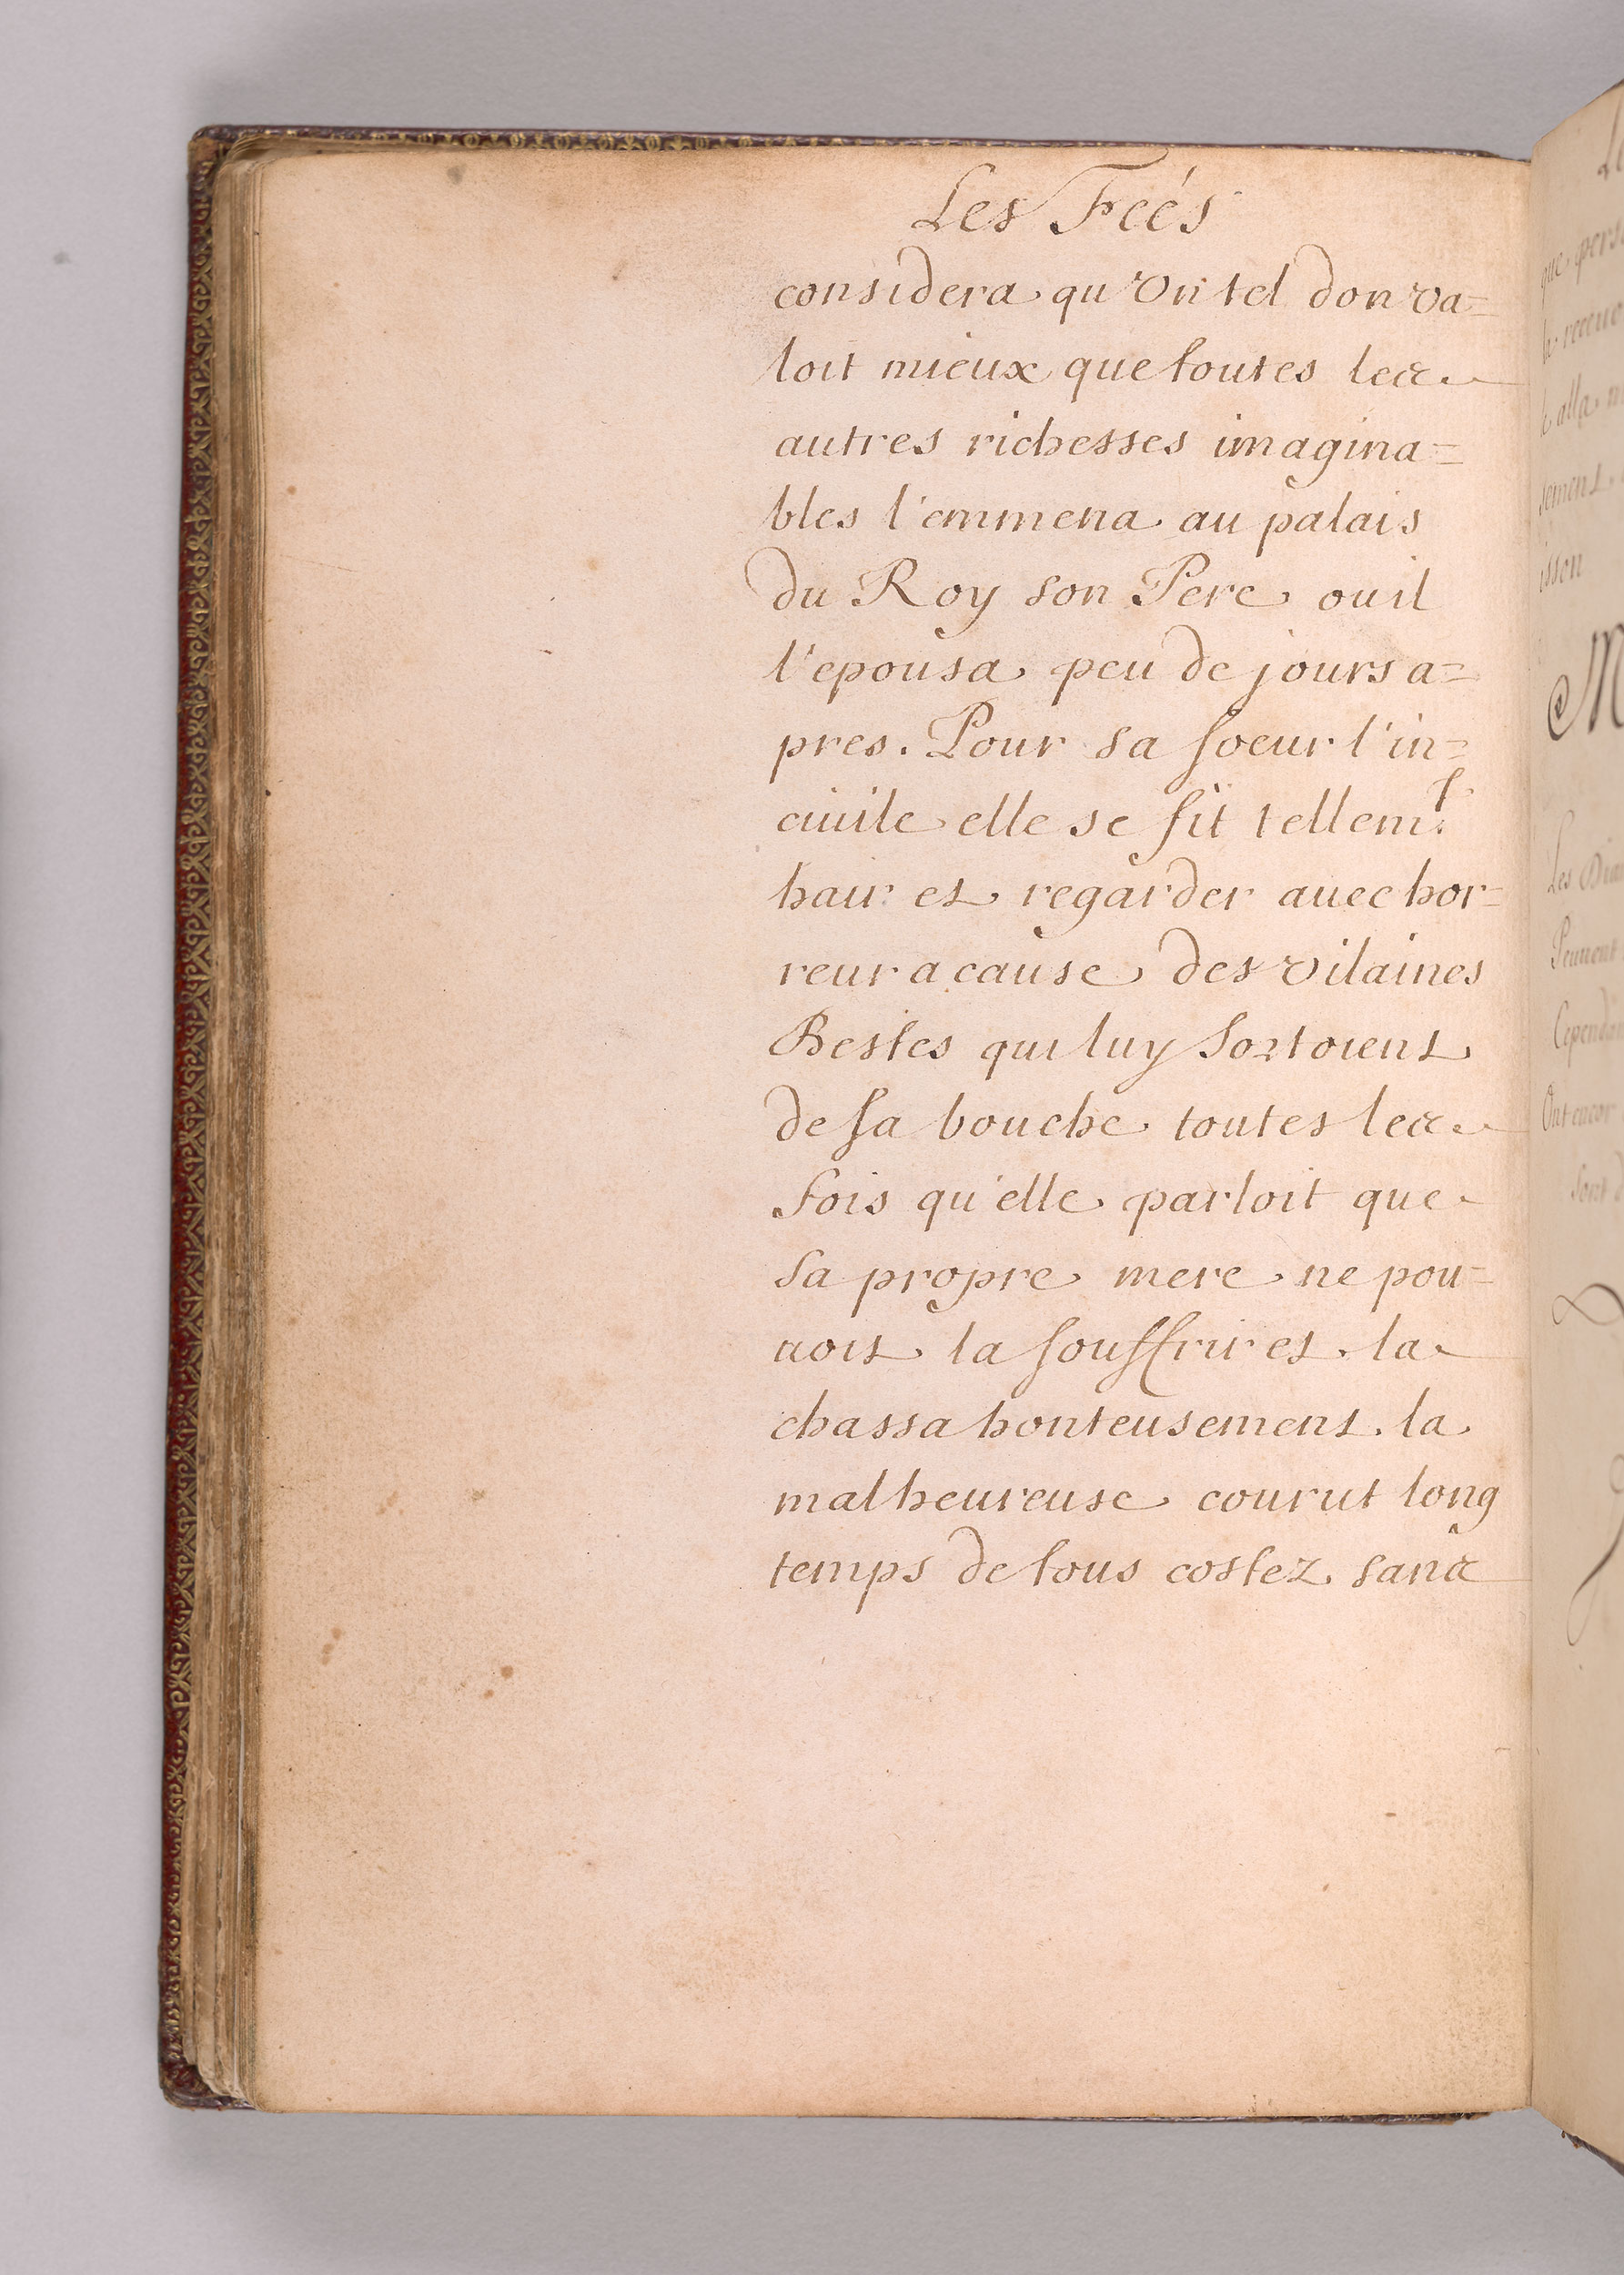 Les Feés
considera qu'vn tel don va=
loit mieux que toutes les
autres richesses imagina=
bles l'emmena au palais
du Roy son Pere ou il
l'epousa peu de jours a=
pres. Pour sa soeur l'in=
ciuile elle se fit tellemt.
hair et regarder auec hor=
reur a cause des vilaines
Bestes qui luy sortoient
de sa bouche toutes les
fois qu'elle parloit que
sa propre mere ne pou=
uoit la souffrir et la
chassa honteusement. la
malheureuse courut long
temps de tous costez sans